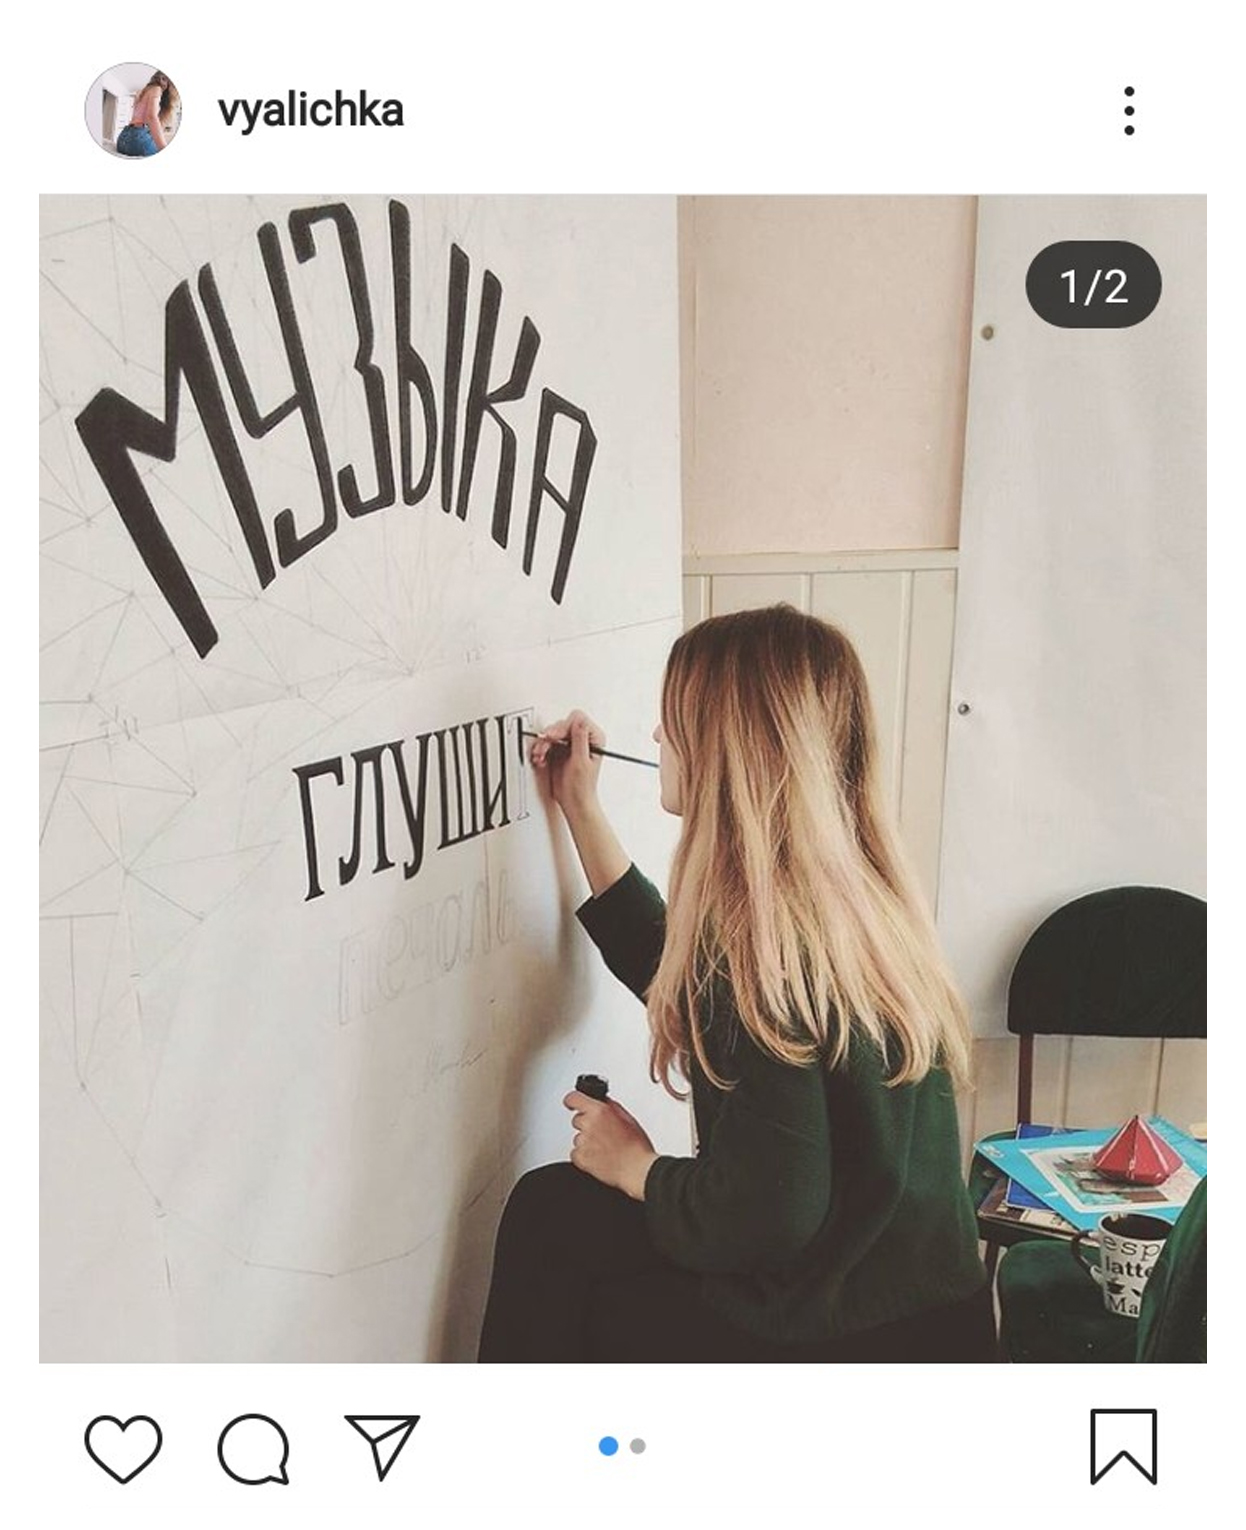 vyalichka
1/2
МУЗЫКА
ГЛУШИТ
печаль
esp
latte
Ma